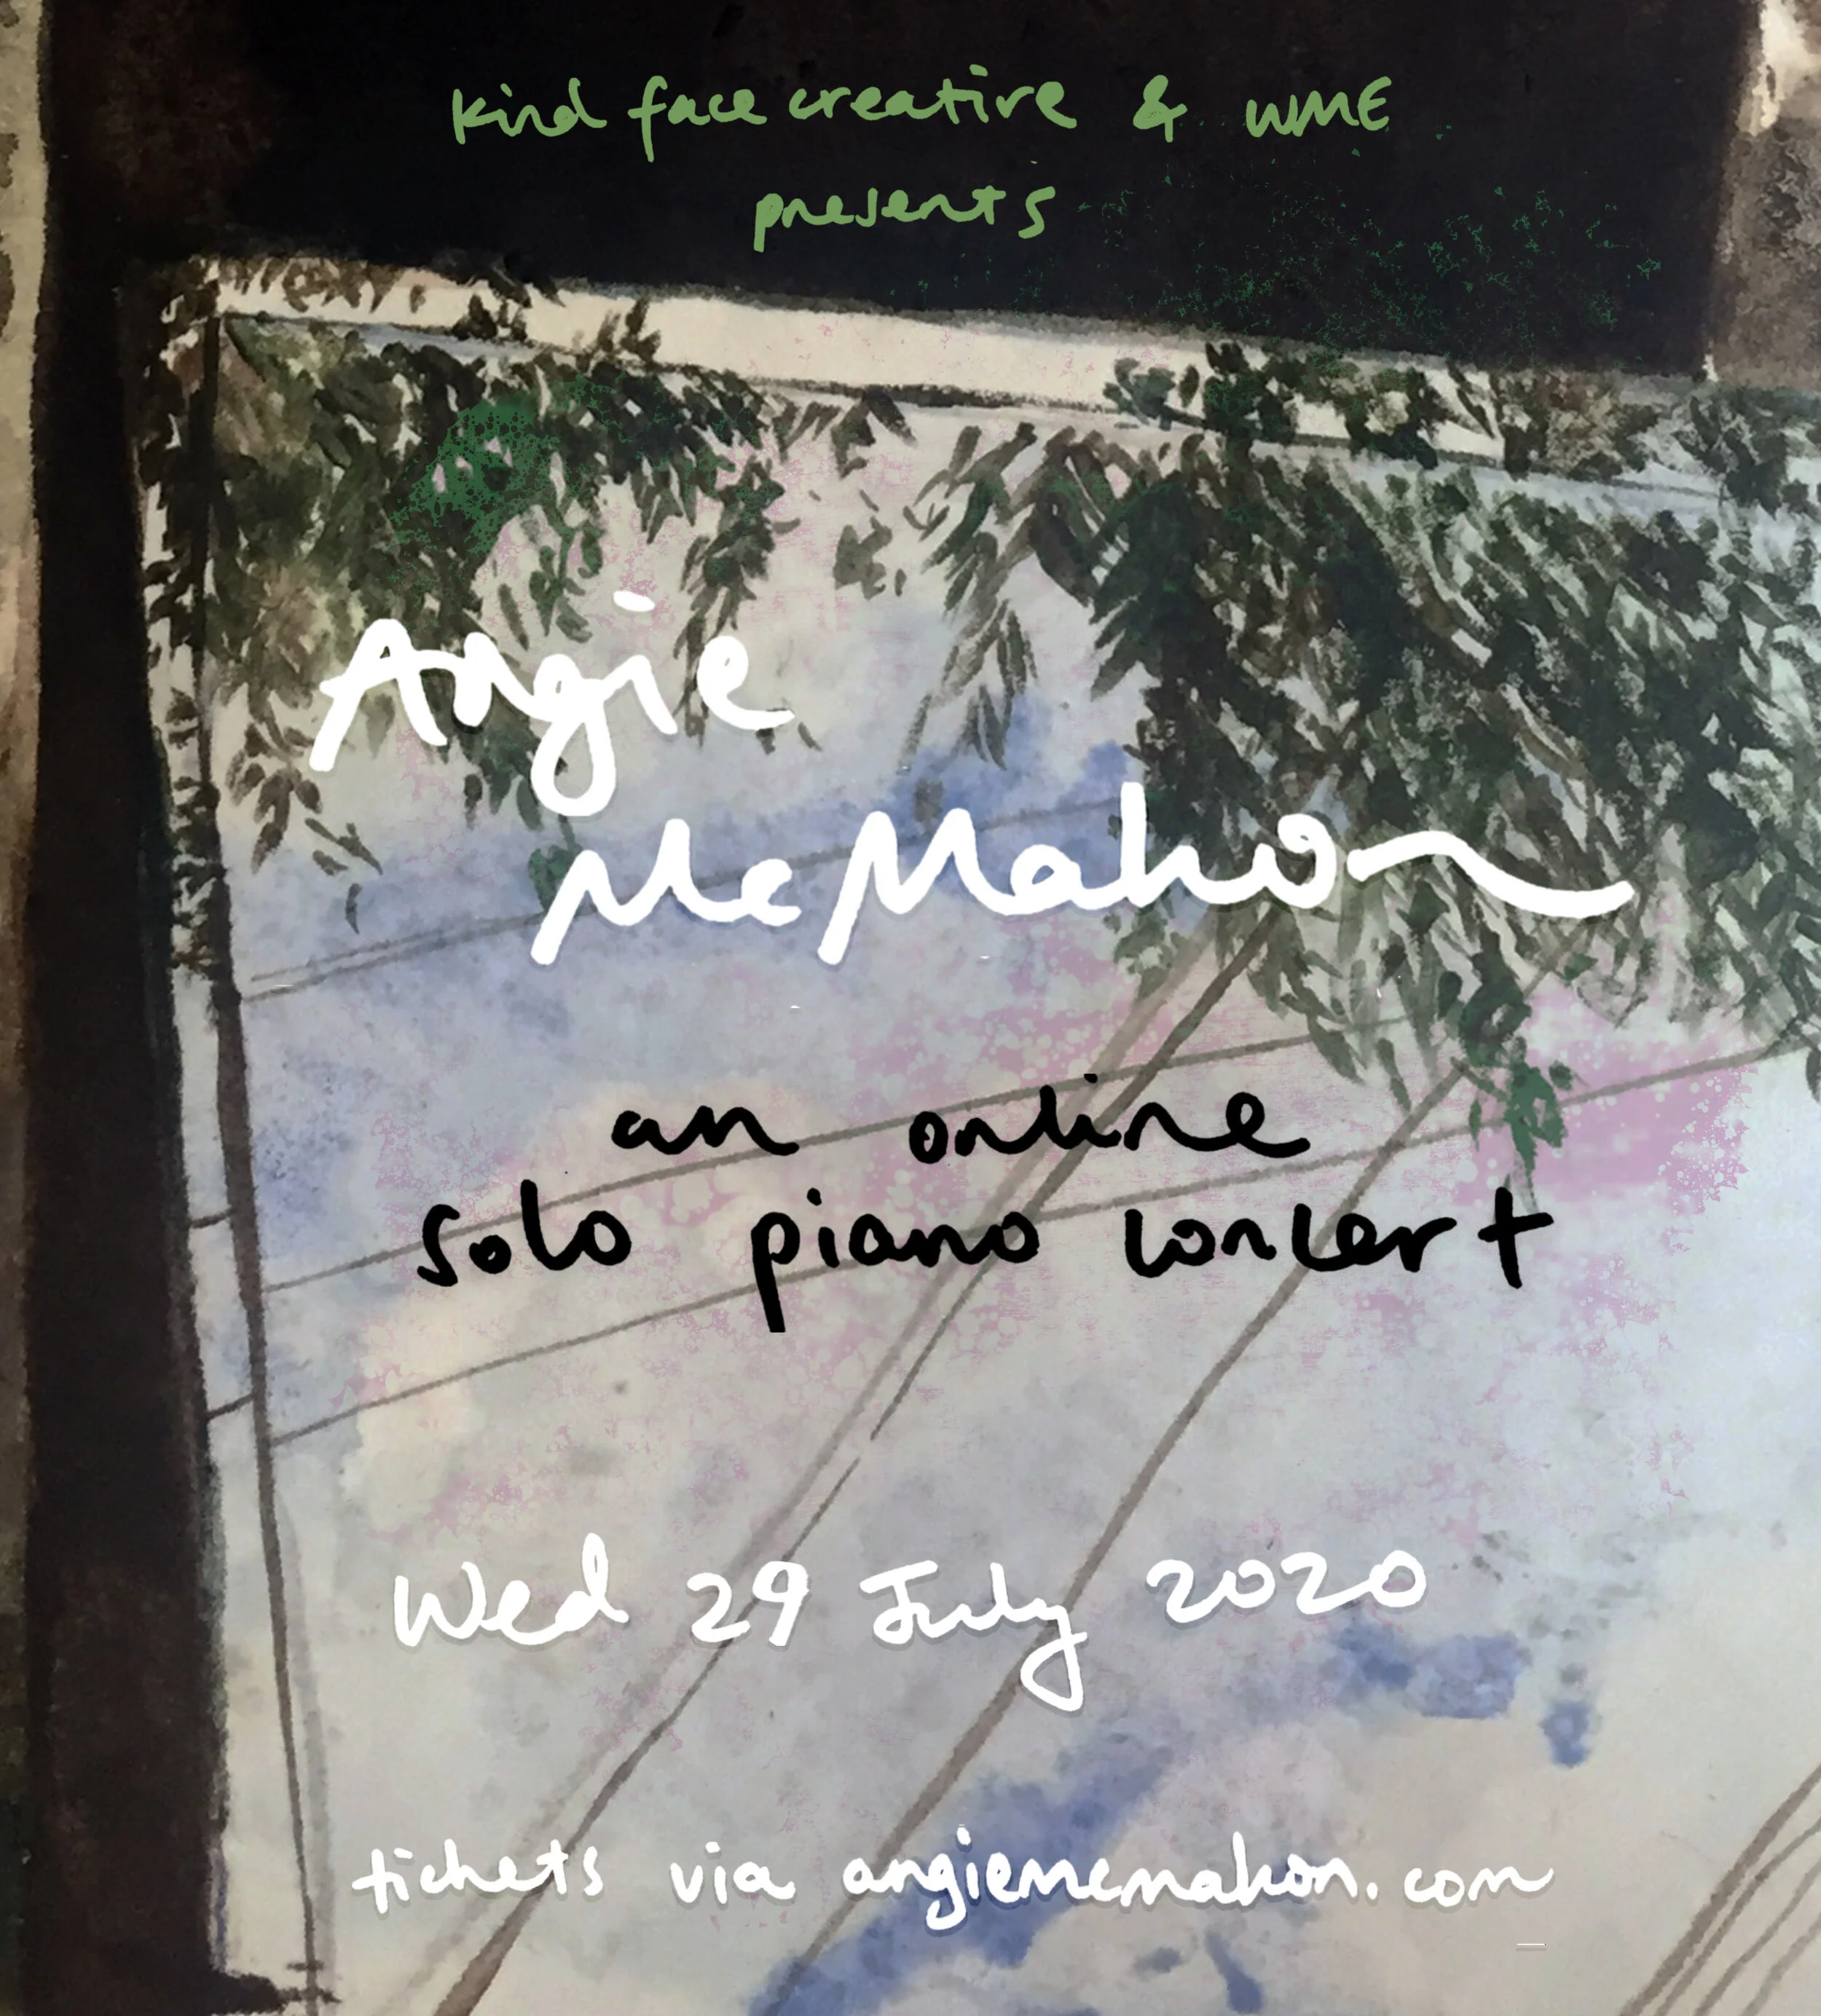 kind face creative & WME
presents
Angie
McMahon
an online
solo piano concert
Wed 29 July 2020
tickets via angiemcmahon.com